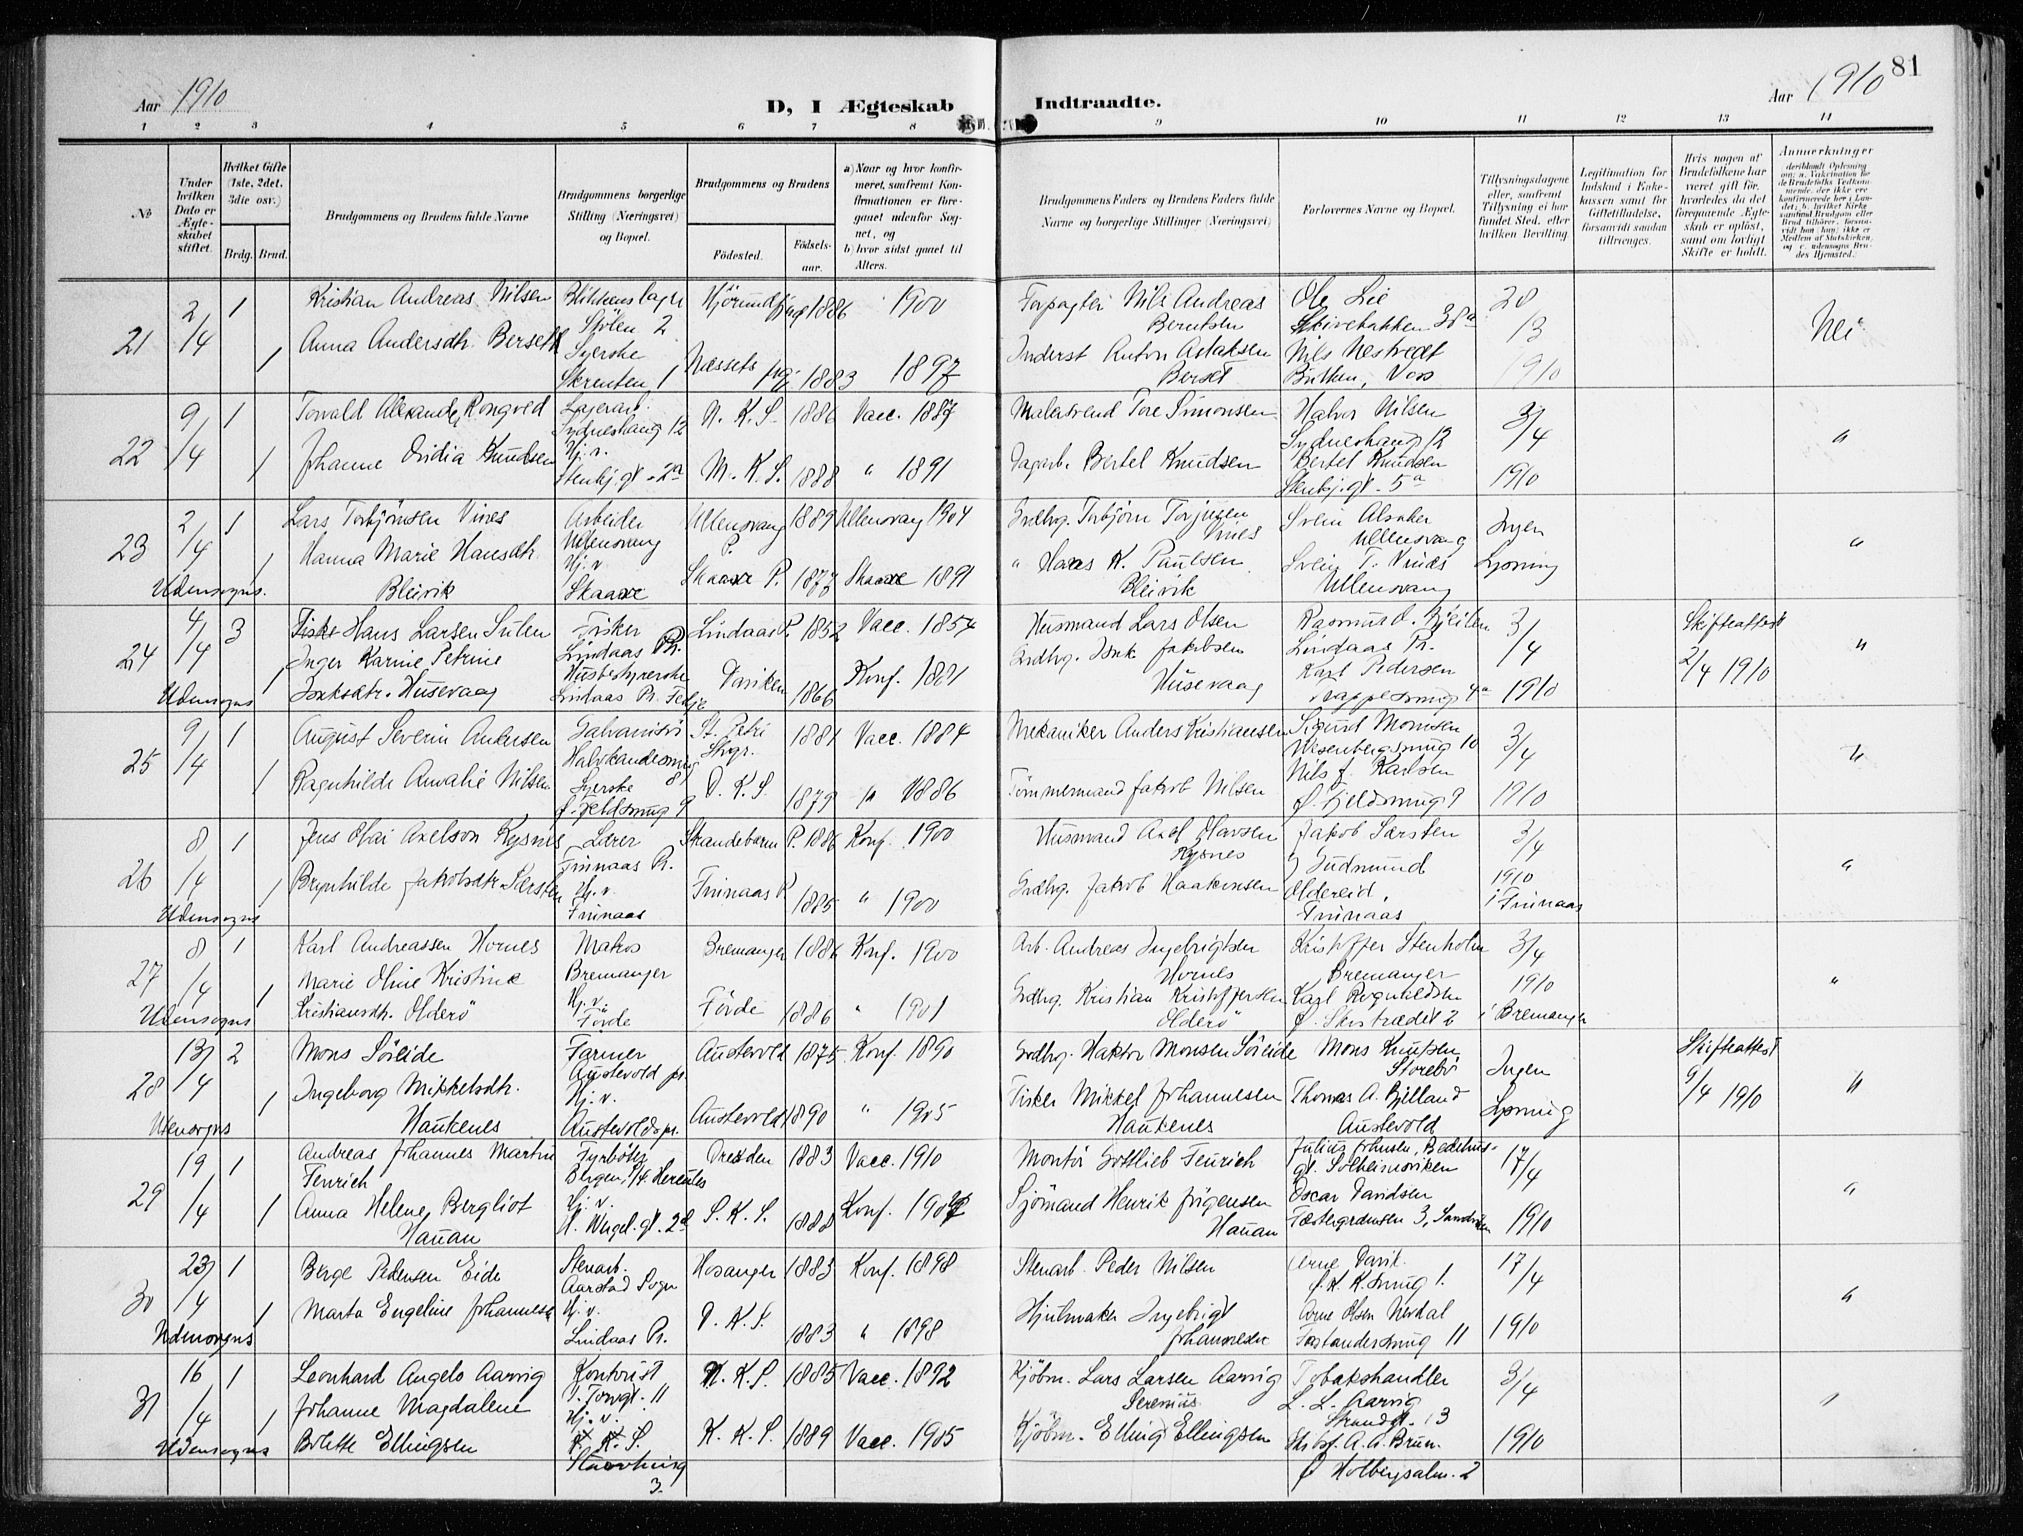 81
Aar 1910
D, I Ægteskab Indtraadte.
Aar 1910
1 2 3 4 5 6 7 8 9 10 11 12 13 14
No
Under hvilken Dato er Ægteskabet stiftet.
Hvilket Gifte (1ste, 2det, 3die osv.)
Brdg. Brud.
Brudgommens og Brudens fulde Navne
Brudgommens borgerlige Stilling (Næringsvei) og Bopæl.
Brudgommens og Brudens
Födested.
Födselsaar.
a) Naar og hvor konfirmeret, saafremt Konfirmationen er foregaaet udenfor Sognet, og
b) hvor sidst gaaet til Alters.
Brudgommens Faders og Brudens Faders fulde Navne og borgerlige Stillinger (Næringsvei)
Forlovernes Navne og Bopæl.
Tillysningsdagene eller, saafremt Tillysning ei har fundet Sted, efter hvilken Bevilling
Legitimation for Indskud i Enkekassen samt for Giftetilladelse, forsaavidt saadan tiltrænges.
Hvis nogen af Brudefolkene har været gift för, hvorledes da det foregaaende Ægteskab er oplöst, samt om lovligt Skifte er holdt.
Anmerkninger
21 2/4 1 Kristian Andreas Nilsen Blikkenslager Hjörundfjord 1886 1900 Forpagter Nils Andreas Ole Lie 28
Sjölen 2 Berntsen Skivebakken 38a 13 Nei
1 Anna Andersdtr. Berseth Syerske Næssets pgj 1883 1897 Inderst Anton Aslaksen Nils Nestvedt 1910
Skrenten 1 Berset Bulken, Voss
22 9/4 1 Torvald Alexander Rongved N. K. S. 1886 Vacc. 1887 Tore Simonsen Halvor Nilsen 3/4
Sydneshaug 12 Sydneshaug 12 "
1 Johanne Ovidia Knudsen Hj. v. M. K. S. 1888 " 1891 Dagarb. Bertel Knudsen Bertel Knudsen 1910
Stenkj.gt. 2a Stenkj.gt. 5a
23 2/4 1 Lars Torbjörnsen Vines Arbeider Ullensvang 1889 Ullensvang 1904 Grdbrg. Torbjörn Torjusen Svein Alsaker Ingen
Ullensvang P. Vines Ullensvang "
1 Hanna Marie Hansdtr. Hj. v. Skaare P. 1877 Skaare 1891 " Hans K. Paulsen Svein T. Vines Lysning
Udensogns. Bleivik Skaare Bleivik Ullensvang
24 4/4 3 Hans Larsen Sulen Fisker Lindaas P. 1852 Vacc. 1854 Husmand Lars Olsen Rasmus O. 3/4 Skifteattest
Inger Karine Petrine Lindaas Pr. Grdbrg. Isak Jakobsen Lindaas Pr. 2/4 1910 "
1 Husbestyrerske 1866 Konf. 1881 Husevaag Karl Pedersen
Udensogns Isaksdtr. Husevaag Lindaas Pr. Fedje 4a 1910
25 9/4 1 August Severin Andersen Galvanisör St. Petri 1881 Vacc. 1884 Mekaniker Anders Kristiansen Sigurd Monsen 3/4
Halvkandesmug 8 Shgr. Wesenbergsmug 10 "
1 Ragnhilde Amalie Nilsen Syerske D. K. S. 1879 " 1886 Tömmermand Jakob Nilsen Nils J. Karlsen 1910
Ö. Fjeldsmug 9 Ö. Fjeldsmug 9
26 8/4 1 Jens Olai Axelson Kysnes Lærer Strandebarm P. 1886 Konf. 1900 Husmand Axel Olavsen Jakob Særsten 3/4
Finnaas Pr. Kysnes Gudmund 1910 "
1 Brynhilde Jakobsdtr. Særsten Hj. v. Finnaas P. 1885 " 1900 Grdbrg. Jakob Haakonsen Oldereid, i Finnaas
Udensogns Finnaas Finnaas
27 8/4 1 Karl Andreassen Hornes Matros Bremanger 1886 Konf. 1900 Arb. Andreas Ingebrigtsen Kristoffer Stenholm 3/4
Marie Oline Kristine Bremanger Hornes Bremanger 1910 "
1 Hj. v. Förde 1886 " 1901 Grdbrg. Kristian Kristoffersen Karl
Udensogns Kristiansdtr. Olderö Förde Olderö i Bremanger
28 13/4 2 Mons Söreide Farmer Austevold 1875 Konf. 1890 Grdbrg. Haktor Monsen Söreide Mons Knutsen Skifteattest
Austevold pr. Storebö Ingen 9/4 1910 "
1 Ingeborg Mikkelsdtr. Hj. v. Austevold 1890 " 1905 Fisker Mikkel Johannesen Thomas A. Bjelland Lysning
Udensogns Haukenes Austevolds pr. Haukenes Austevold
29 19/4 1 Andreas Johannes Martin Fyrböter Dresden 1883 Vacc. 1910 Montör Gottlieb Fenrich Julius Johnsen, Bedehus- 17/4
Fenrich Bergen, Hercules gt. Solheimsviken "
1 Anna Helene Bergliot Hj. v. S. K. S. 1888 Konf. Sjömand Henrik Jörgensen Oscar Davidsen 1910
Hauan Hauan Fæstegrændsen 3, Sandviken
30 23/4 1 Berge Pedersen Eide Stenarb. Hosanger 1883 Konf. 1898 Stenarb. Peder Nilsen Arne 17/4
Aarstad Sogn Ö. K. K. smug 1. "
1 Marta Engeline Johannesen Hj. v. D. K. S. 1883 " 1898 Hjulmaker Ingebrigt Arne Olsen Nesdal 1910
Udensogns Lindaas Pr. Johannesen Forstandersmug 11
31 16/4 1 Leonhard Angelo Aarvig Kontorist N. K. S. 1885 Vacc. 1892 Kjöbm. Lars Larsen Aarvig Tobakshandler 3/4
Johanne Magdalene Torvgt. 11 Serenius L. L. Aarvig "
1 Hj. v. Strandgt. 13
Udensogns Bolette Ellingsen K. S. K. K. S. 1889 Vacc. 1905 Kjöbm. Elling Ellingsen A. A. Bruun 1910
3. Ö Holbergsalm. 2